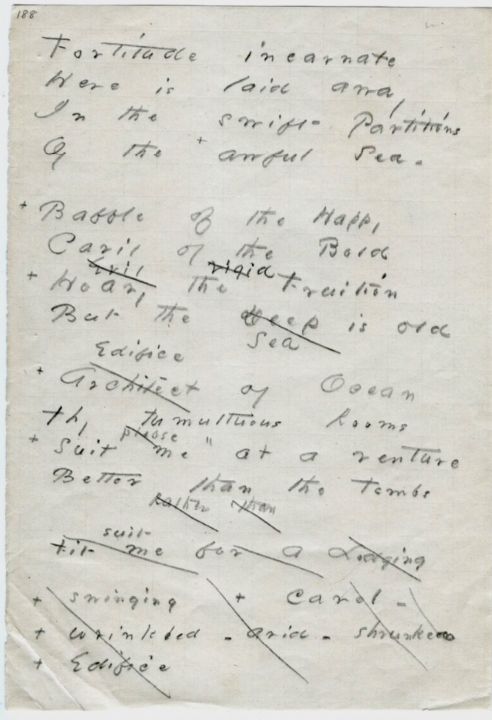 188
Fortitude incarnate
Here is laid away
In the swift Partitions
Of the + awful Sea -
+ Babble of the Happy
Cavil of the Bold
Evil rigid
+ Hoary the Fruition
But the Deep is old
Sea
Edifice
+ Architect of Ocean
Thy tumultuous Rooms
please
+ Suit me" at a venture
Better than the Tombs
Rather than
suit
Fit me for a Lodging
+ swinging + Carol -
+ wrinkled - arid - shrunken
+ Edifice